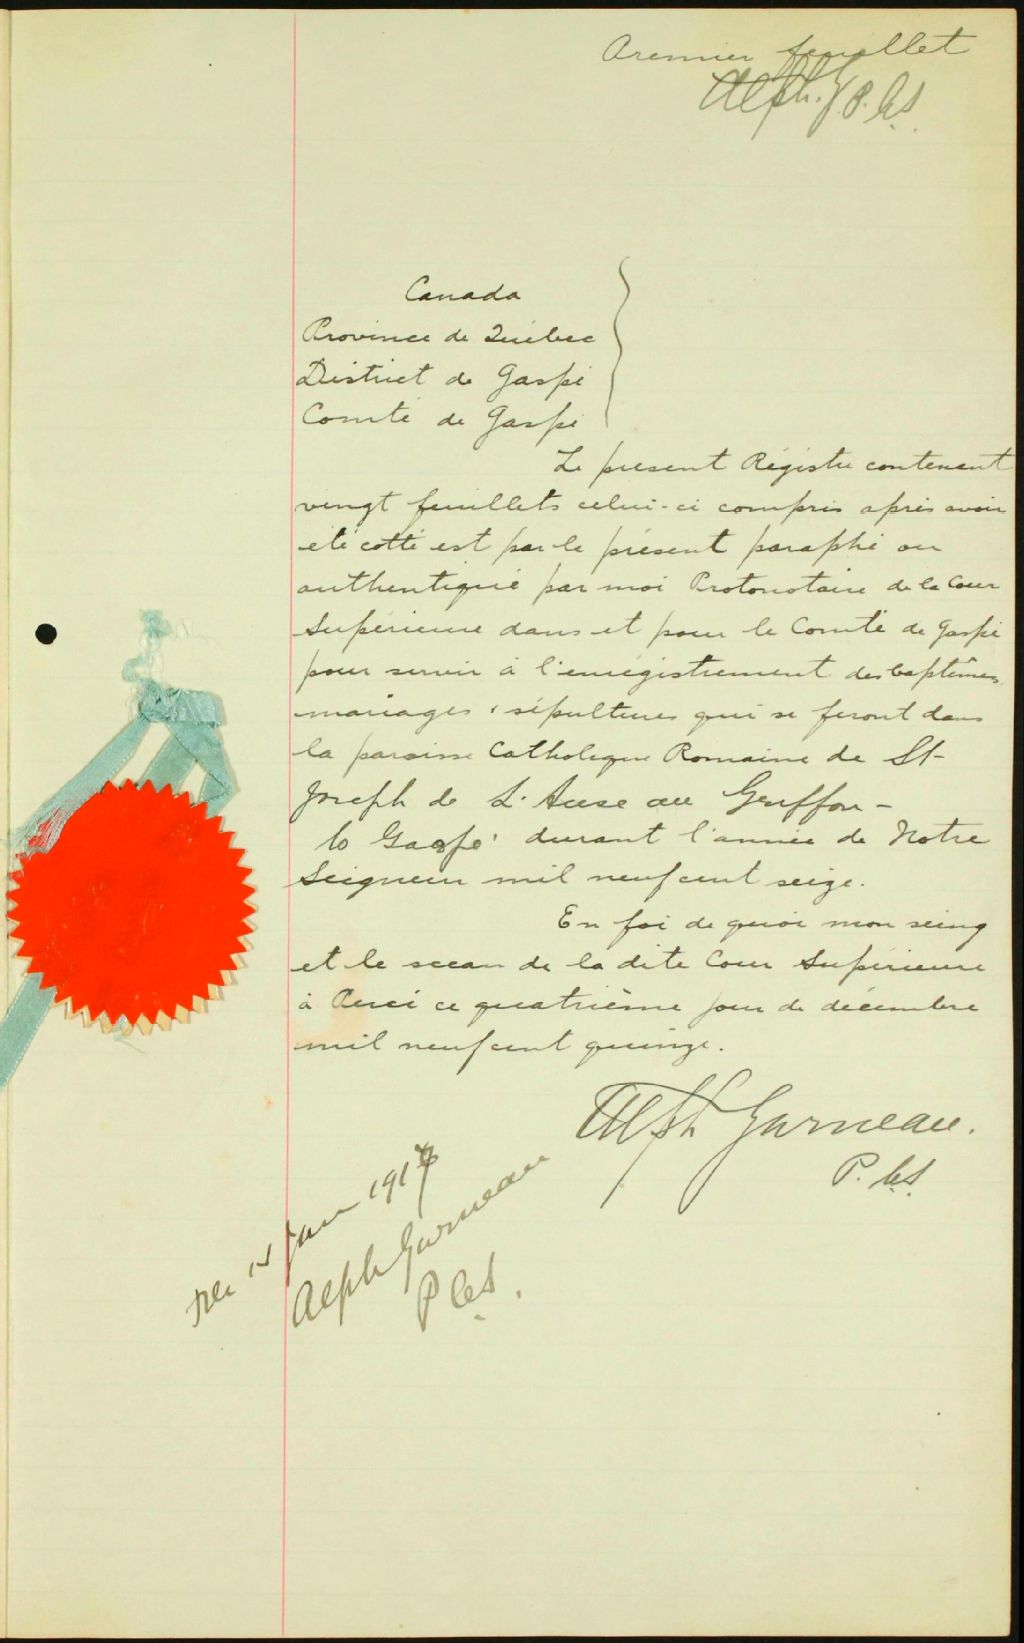 Premier feuillet
Alph. G P. C.S.
Canada
Province de Québec
District de Gaspé
Comté de Gaspé
Le présent Régistre contenant
vingt feuillets celui-ci compris après avoir
été cotté est par le présent paraphé ou
authentiqué par moi Protonotaire de la Cour
Supérieure dans et pour le Comté de Gaspé
pour servir à l'enrégistrement des baptêmes
mariages, sépultures qui se feront dans
la paroisse Catholique Romaine de St-
Joseph de L'Anse au Griffon -
Co Gaspé durant l'année de Notre
Seigneur mil neuf cent seize.
En foi de quoi mon seing
et le sceau de la dite Cour Supérieure
à Percé ce quatrième jour de décembre
mil neuf cent quinze.
Alph Garneau.
P. C.S.
Janv 1917
Alph Garneau
P C.S.